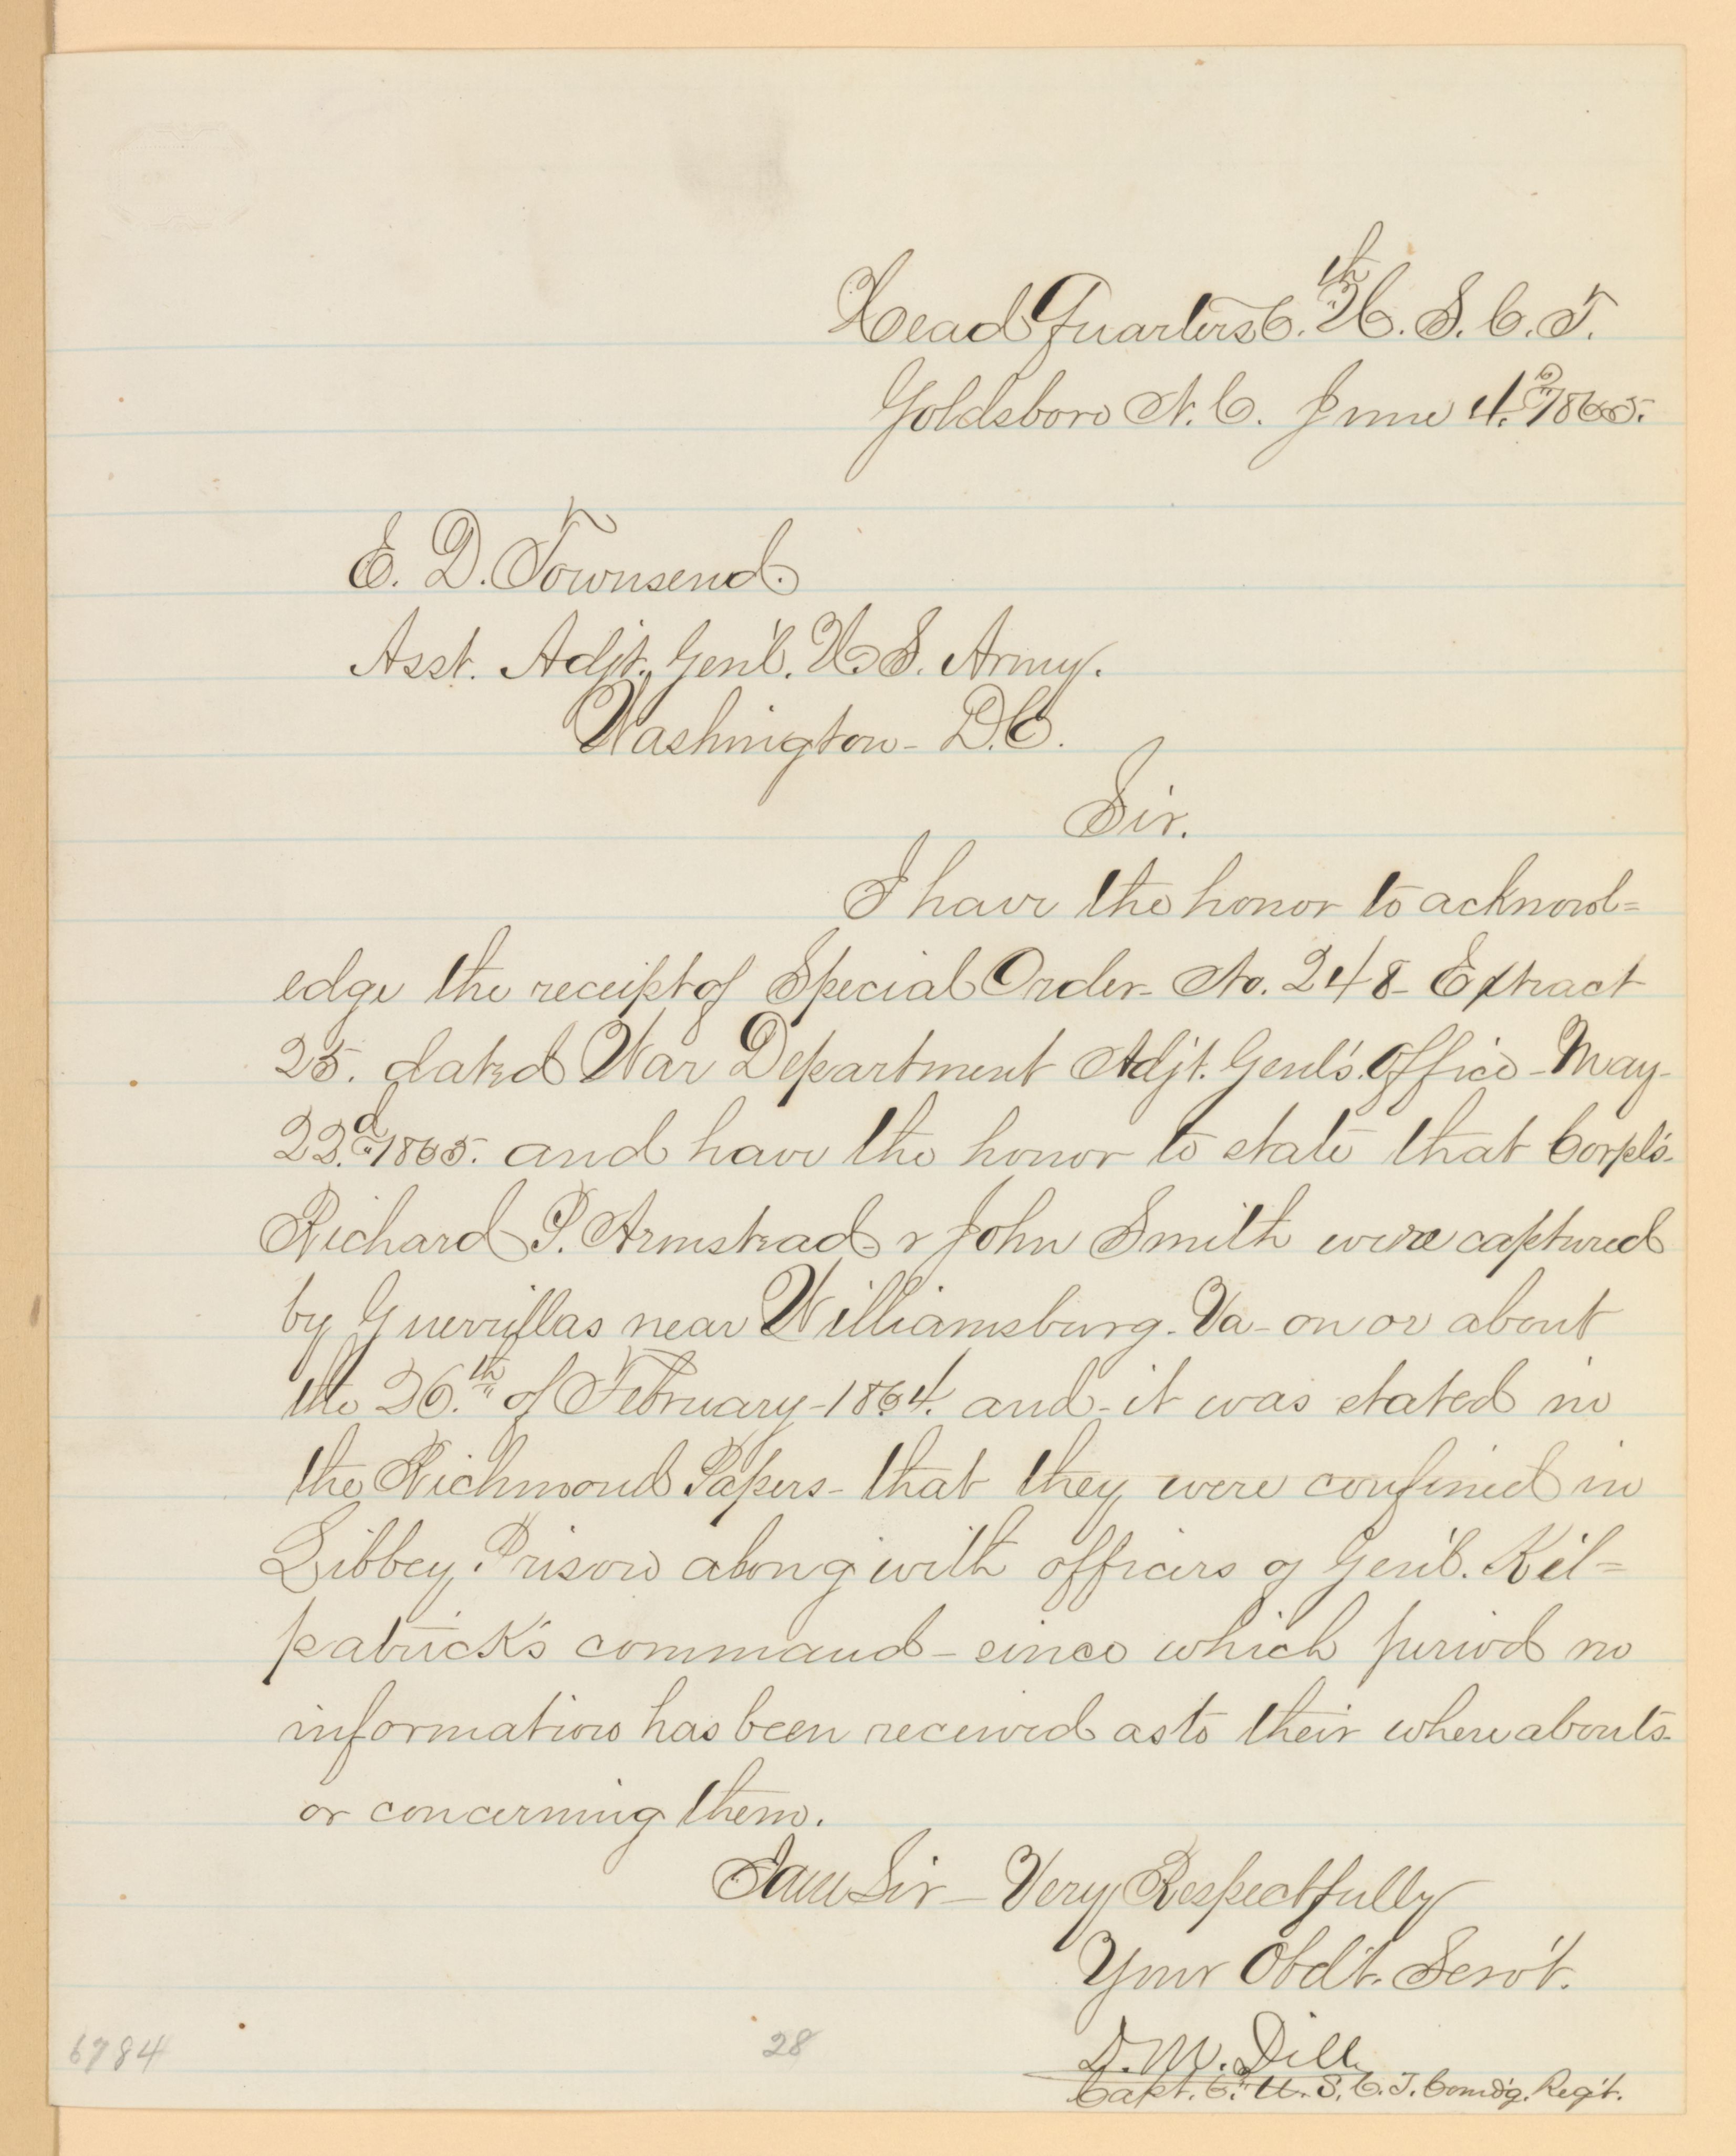 Head Quarters 6.th U. S. C. T.
Goldsboro N. C. June 4.th 1865.
E. D. Townsend.
Asst. Adjt. Genl. U. S. Army.
Washington - D.C.
Sir.
I have the honor to acknowl=
edge the receipt of Special Order - No. 248 - Extract
25. dated War Department Adjt. Genl's. Office - May -
22.d 1865. and have the honor to state that Corpl's.
Richard P. Armstead & John Smith were captured
by Guerrillas near Williamsburg - Va - on or about
the 26.th of February - 1864. and - it was stated in
the Richmond Papers - that they were confined in
Libbey Prison along with officers of Genl. Kil=
patrick's command - since which period no
information has been received as to their whereabouts -
or concerning them.
I am Sir - Very Respectfully
Your Obdt. Servt.
D. M. Dill
Capt. 6.th U. S. C. T. Comdg. Regt.
6784
28